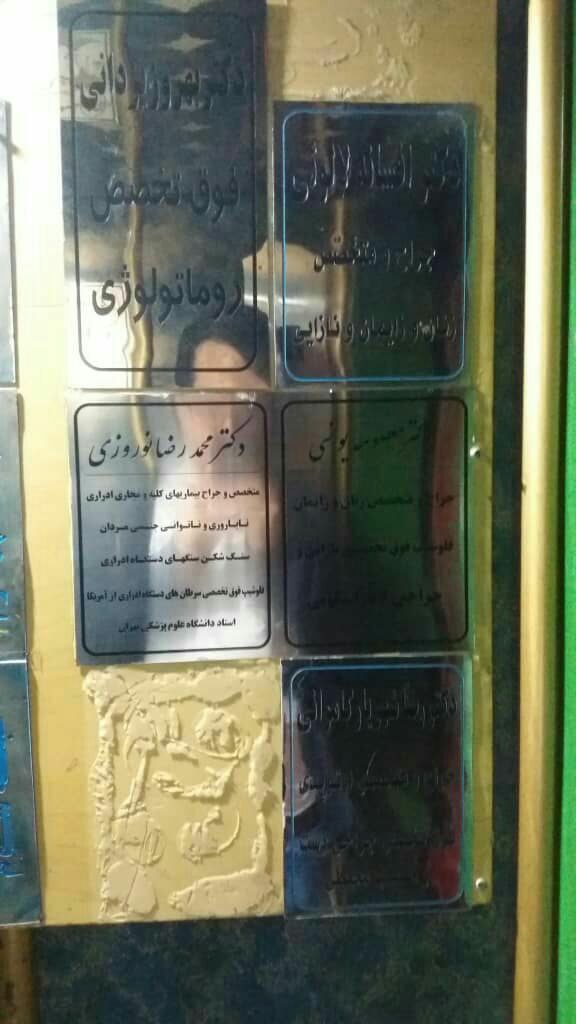 دکتر بهروز یزدانی
فوق تخصص
روماتولوژی
دکتر افسانه لالوئی
جراح و متخصص
زنان و زایمان و نازایی
دکتر محمد رضا نوروزی
متخصص و جراح بیماریهای کلیه و مجاری ادراری
ناباروری و ناتوانی جنسی مردان
سنگ شکن سنگهای دستگاه ادراری
فلوشیپ فوق تخصصی سرطان های دستگاه ادراری از آمریکا
استاد دانشگاه علوم پزشکی تهران
یونسی
جراح و متخصص زنان و زایمان
فلوشیپ فوق تخصصی نازایی و
جراحی لاپاراسکوپی
دکتر رضا شهریار کامرانی
دست